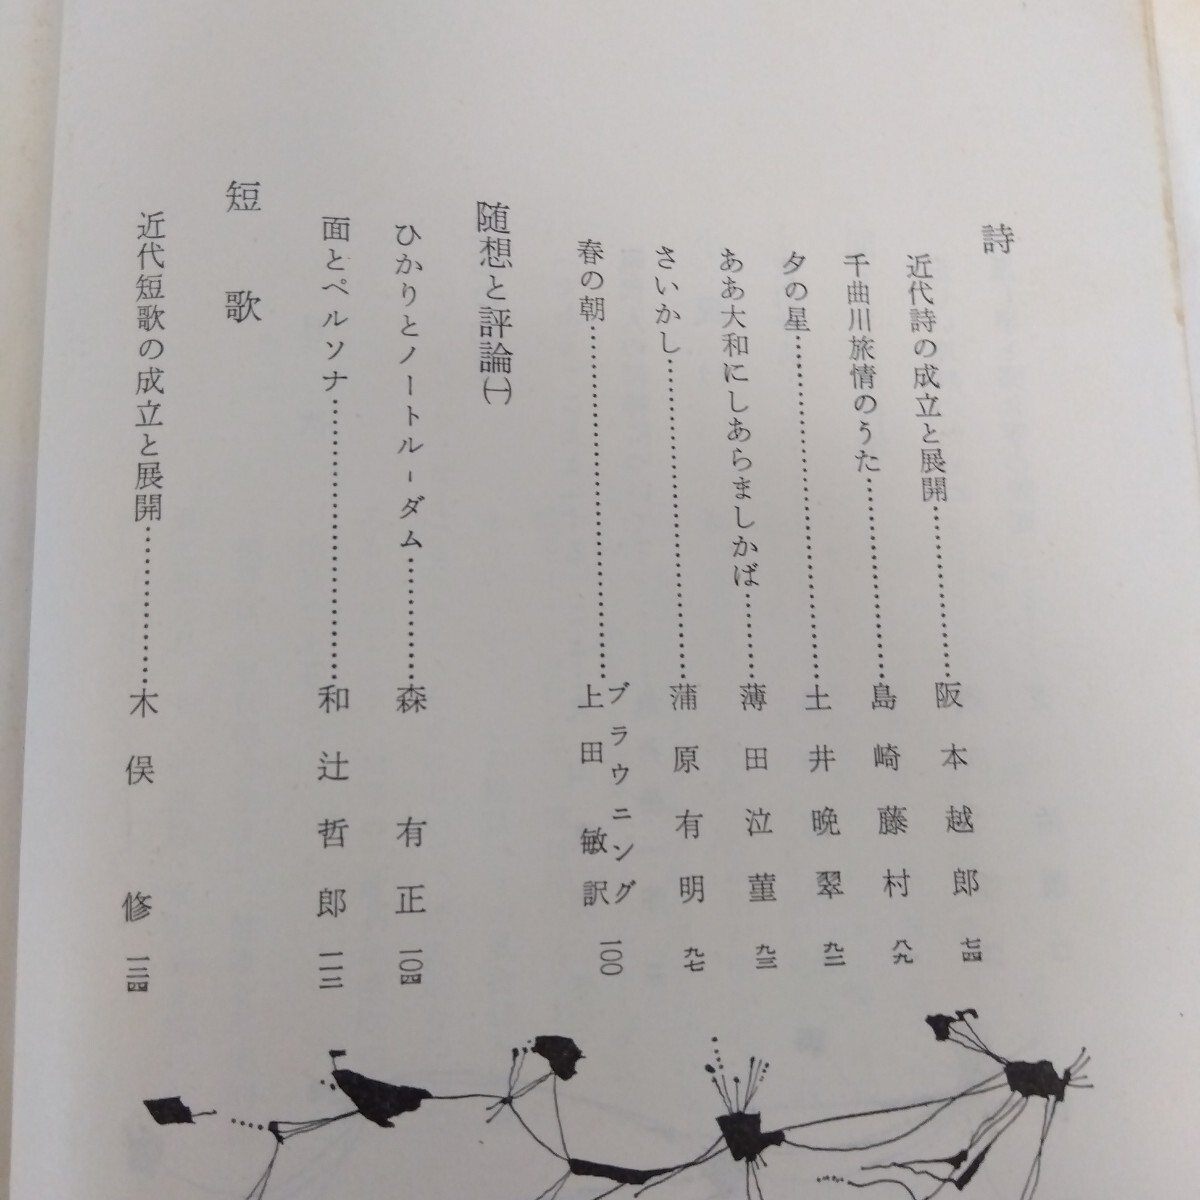 詩
近代詩の成立と展開……………阪本越郎 七四
千曲川旅情のうた……………島崎藤村 八九
夕の星……………土井晩翠 九二
ああ大和にしあらましかば……………薄田泣菫 九三
さいかし……………蒲原有明 九七
春の朝……………ブラウニング 上田敏訳 一〇〇
随想と評論㈠
ひかりとノートル-ダム……………森有正 一〇四
面とペルソナ……………和辻哲郎 一一三
短歌
近代短歌の成立と展開……………木俣修 一三四